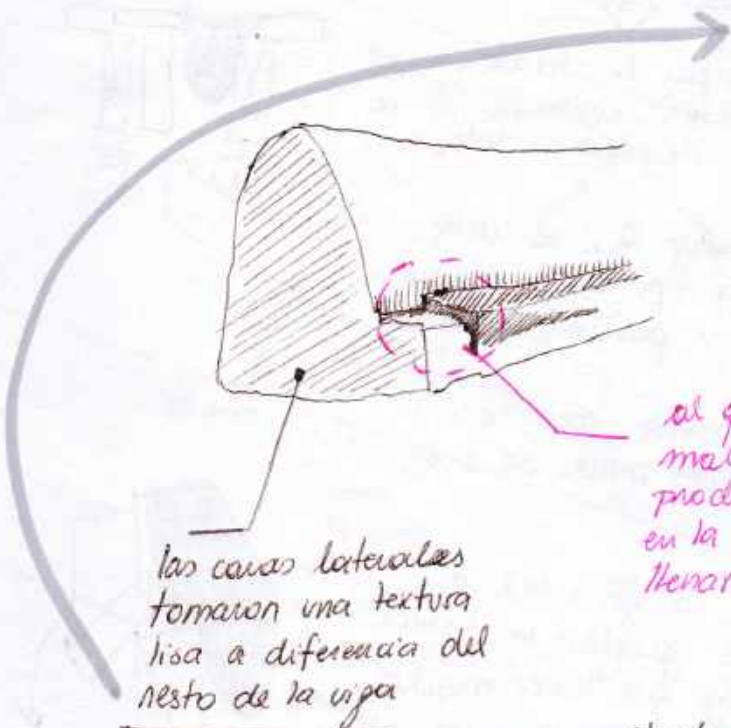 las caras laterales
tomaron una textura
lisa a diferencia del
resto de la viga
al
mal
prod
en la
llenar